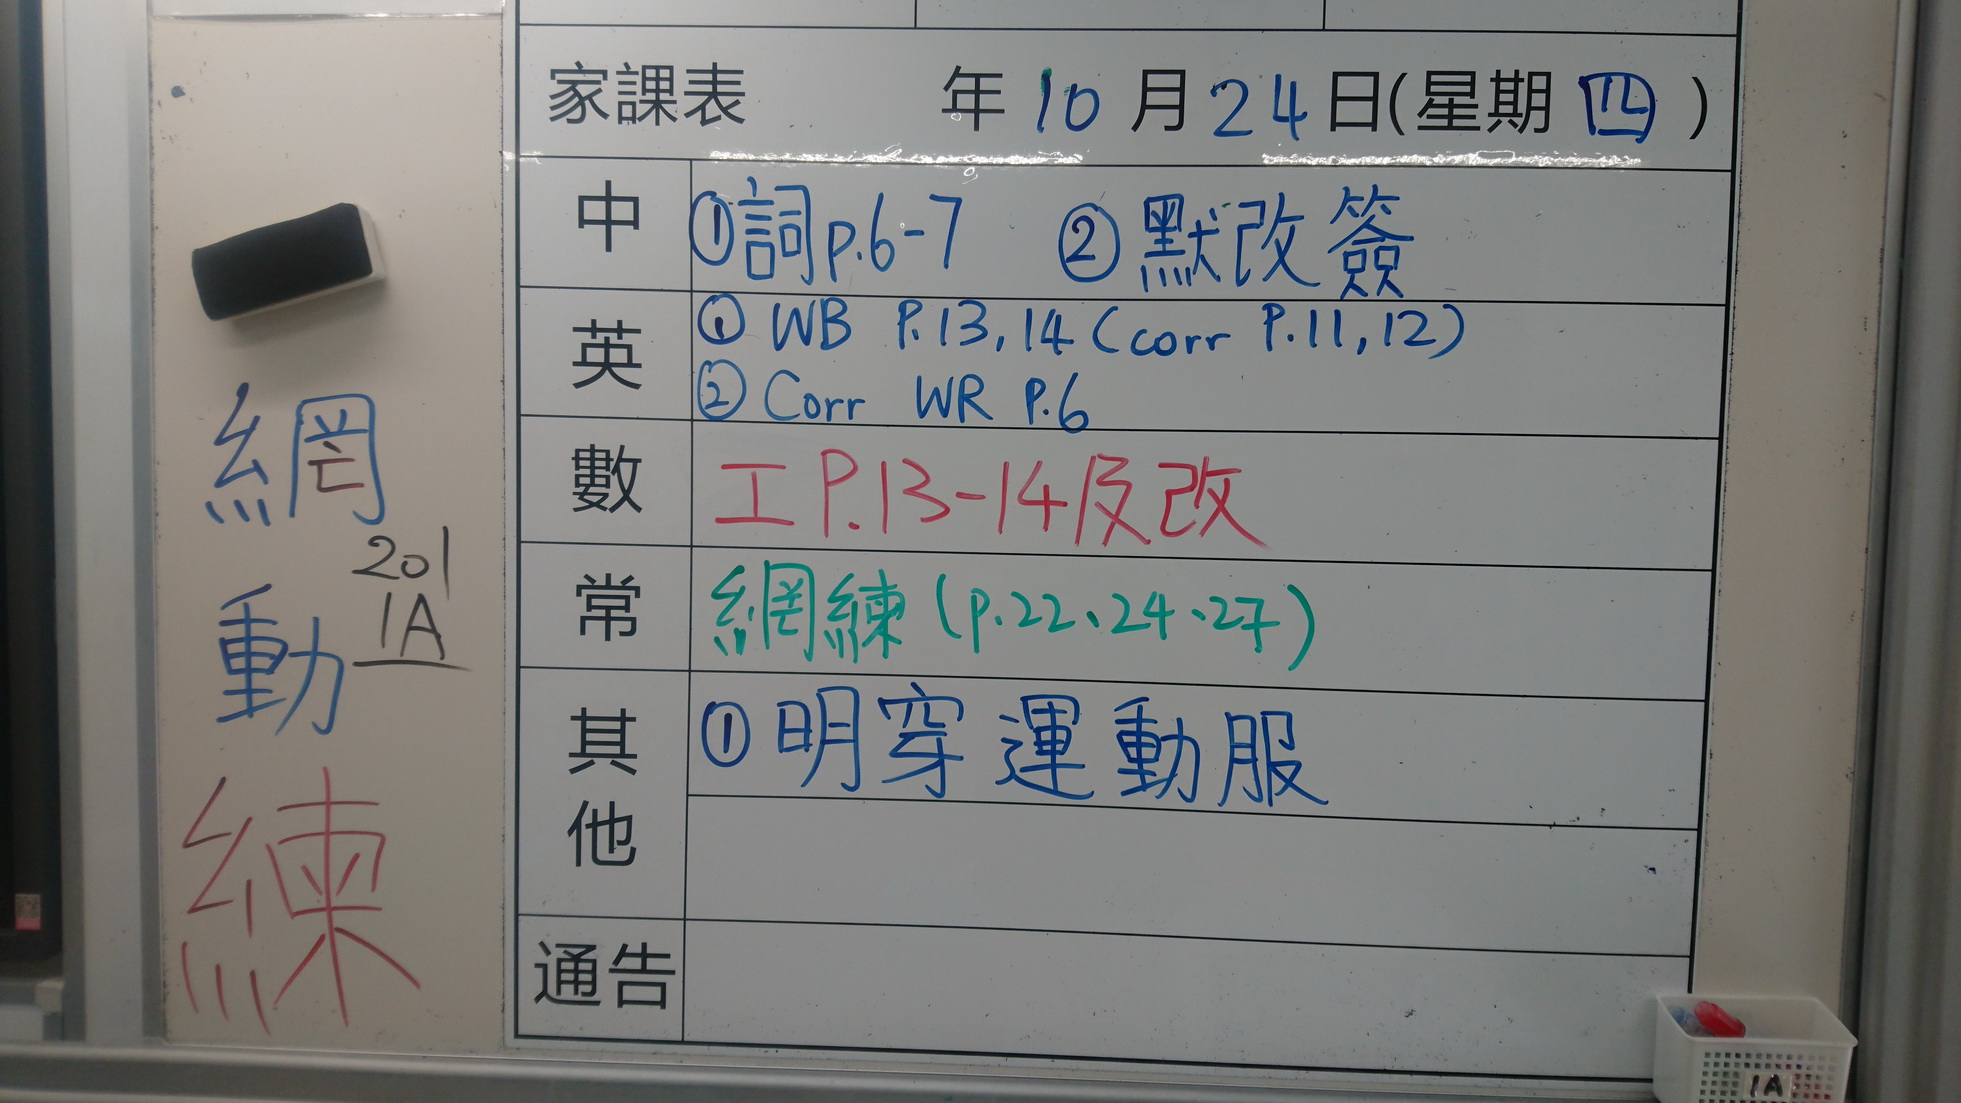 家課表 年 10 月 24 日(星期 四 )
中 ①詞p.6-7 ②默改簽
英 ① WB P.13,14 (corr P.11,12)
② Corr WR P.6
數 工P.13-14及改
常 網練 (p.22、24、27)
其他 ①明穿運動服
通告
網
動
練
201
1A
1A